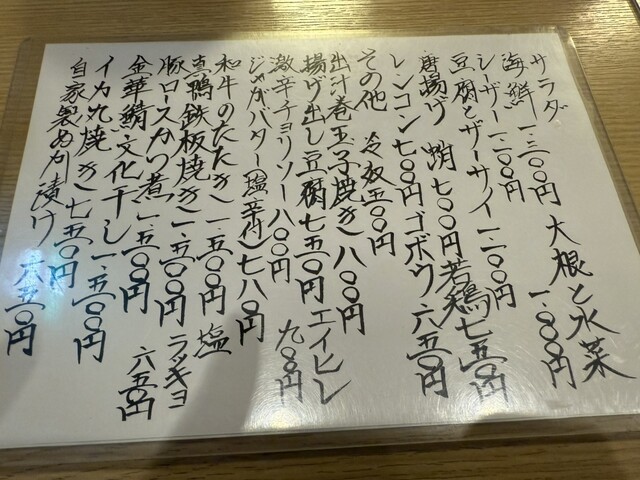 サラダ 大根と水菜
海鮮一、三〇〇円 一、一〇〇円
シーザー一、二〇〇円
豆腐とザーサイ一、二〇〇円
唐揚げ 蛸七〇〇円 若鶏七五〇円
レンコン七〇〇円 ゴボウ六五〇円
その他 冷奴五〇〇円
出汁巻玉子焼き八〇〇円
揚げ出し豆腐七五〇円 エイヒレ
激辛チョリソー八〇〇円 九〇〇円
ジャガバター(塩辛付)七八〇円
和牛のたたき一、五〇〇円 塩
真鴨鉄板焼き一、五〇〇円 ラッキョ
豚ロースかつ煮一、五〇〇円 六五〇円
金華鯖文化干し一、五〇〇円
イカ丸焼き七五〇円
自家製ぬか漬け六五〇円